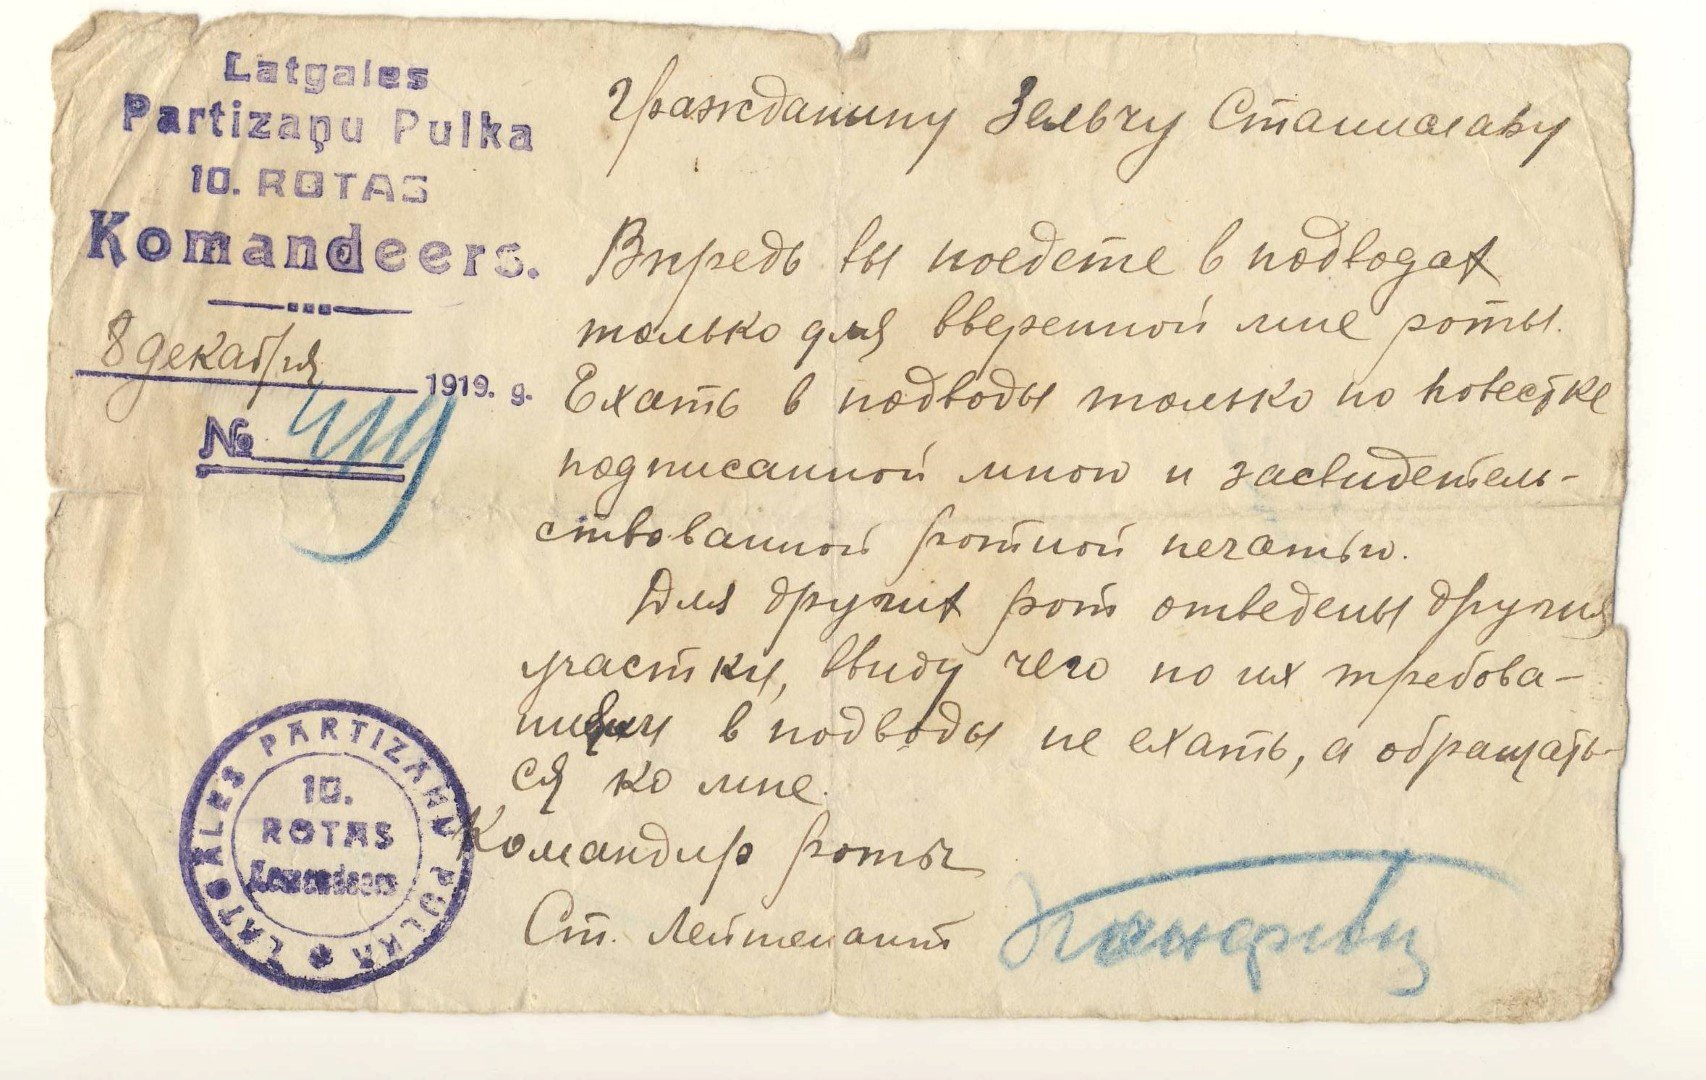 Latgales
Partizaņu Pulka
10. ROTAS
Komandeers.
8 декабря 1919. g.
№
Гражданину Зельчу Станиславу
Впредь вы поедете в подводах
только для вверенной мне роты.
Ехать в подводы только по повестке
подписанной мною и засвидетель-
ствованной ротной печатью.
Для других рот отведены другия
участки, ввиду чего по их требова-
в подводы не ехать, а обращать-
ся ко мне.
Командир роты
Ст. Лейтенант
LATGALES PARTIZANU PULKA
10.
ROTAS
Komandeers